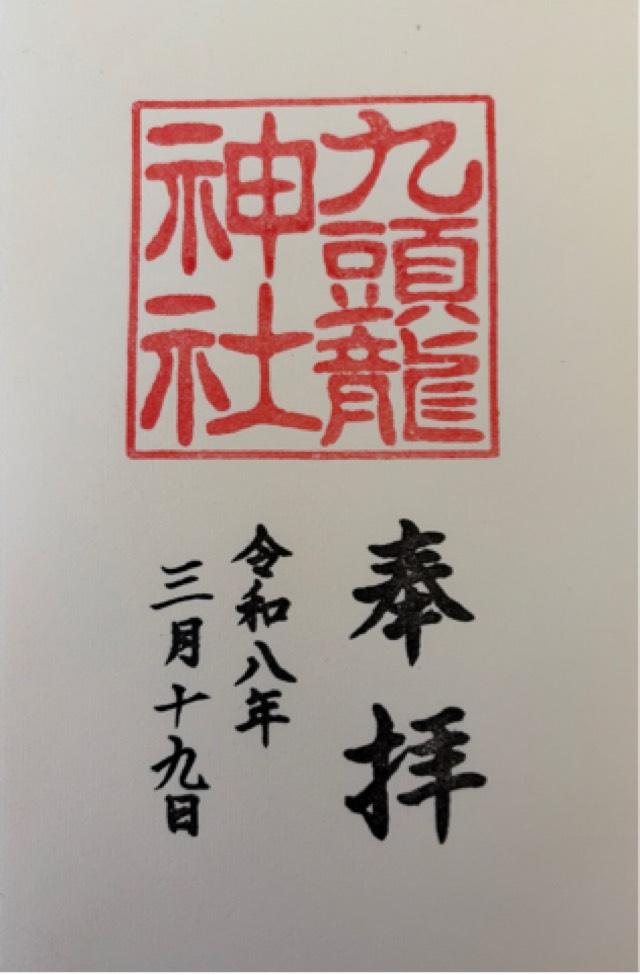 九頭龍
神社
奉拝
令和八年
三月十九日